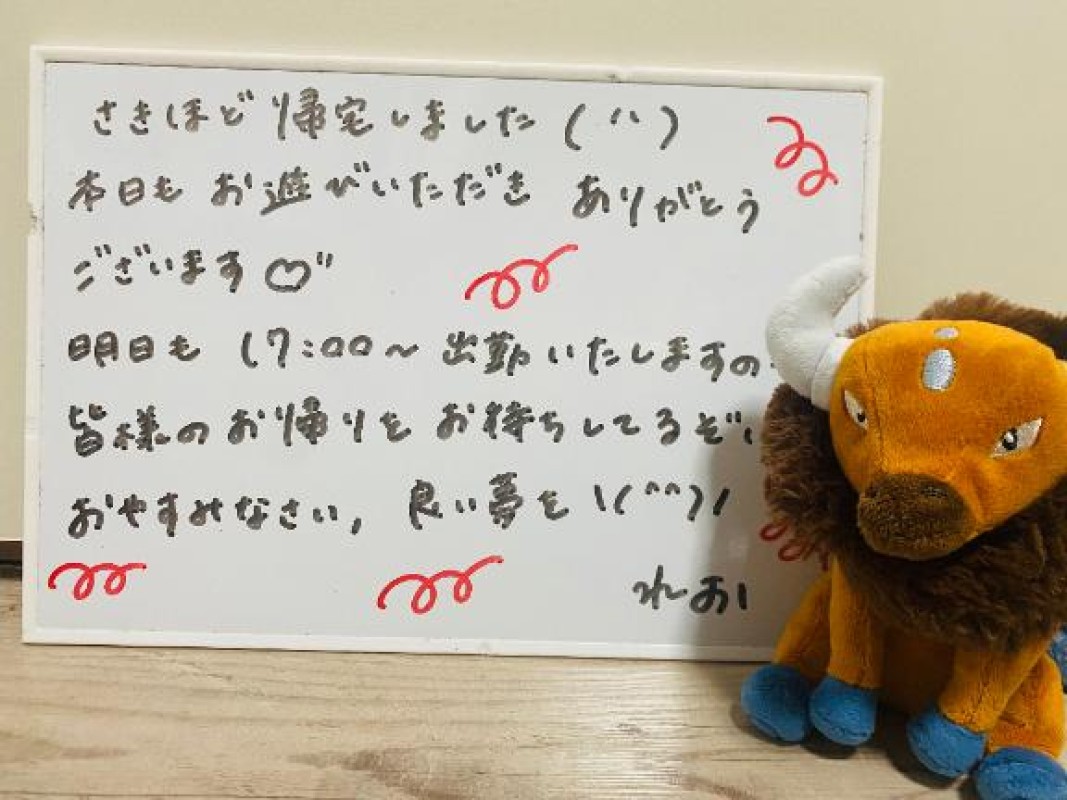 さきほど帰宅しました(^^)
本日も お遊びいただき ありがとう
ございます♡"
明日も 17:00~ 出勤いたしますの
皆様のお帰りを お待ちしてるぞ
おやすみなさい, 良い夢を \(^^)/
れおい